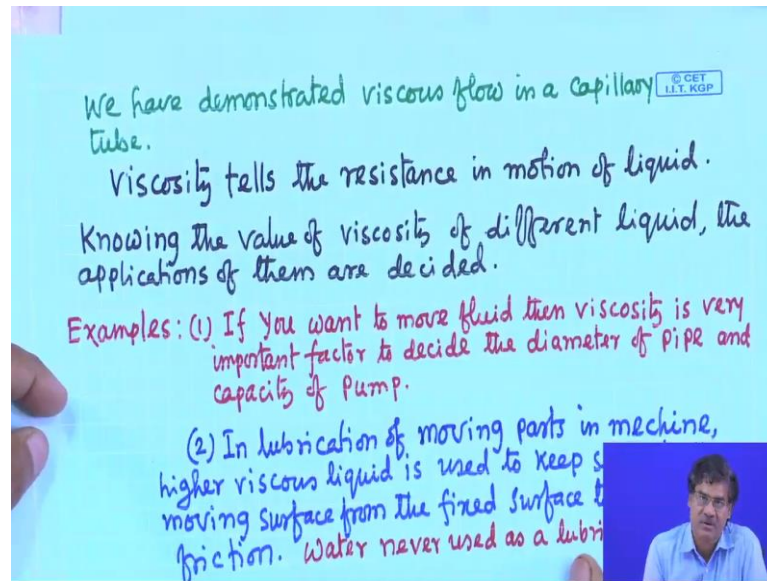 We have demonstrated viscous flow in a capillary
© CET
I.I.T. KGP
tube.
Viscosity tells the resistance in motion of liquid.
Knowing the value of viscosity of different liquid, the
applications of them are decided.
Examples: (1) If you want to move fluid then viscosity is very
important factor to decide the diameter of pipe and
capacity of pump.
(2) In lubrication of moving parts in mechine,
higher viscous liquid is used to keep
moving surface from the fixed surface
friction. Water never used as a